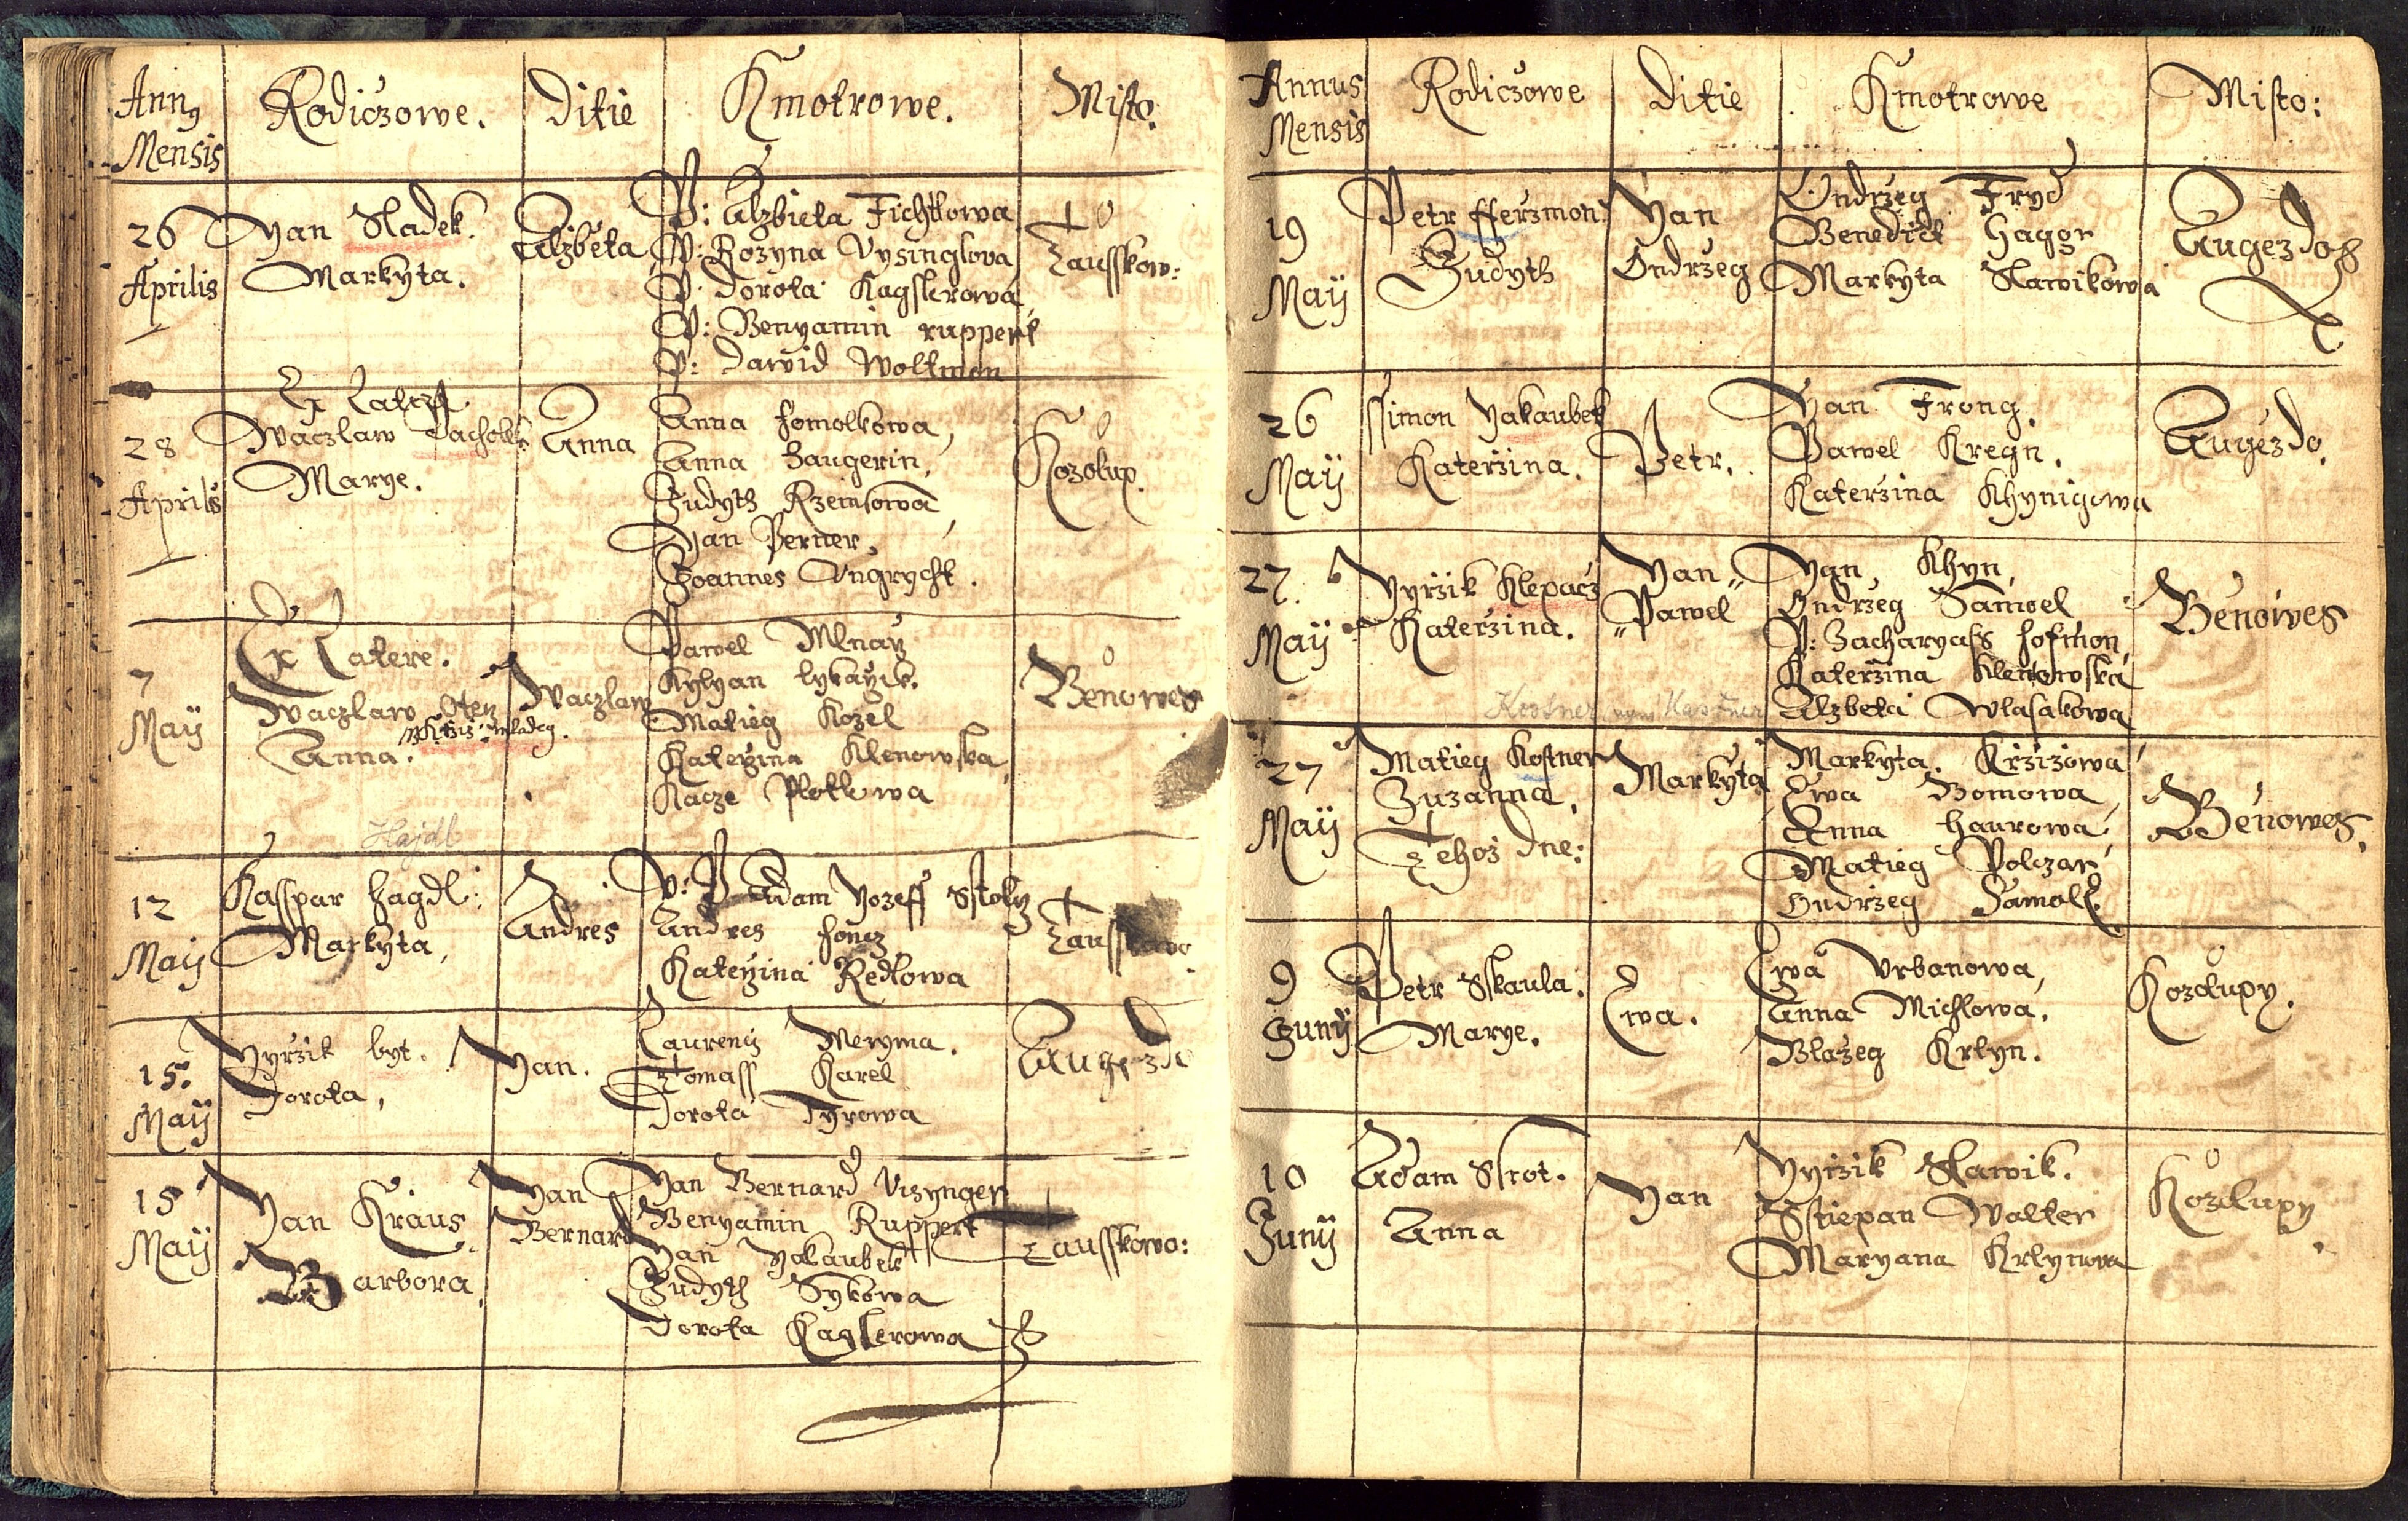 Anng Mensis
Rodiczowe.
Ditie
Kmotrowe.
Misto:
26 Aprilis
Yan Sladek.
Markyta.
Alzbeta
P: Alzbieta Fichtlowa
P: Rozyna Vysinglova
P: Dorota Kagslerowa
P: Benyamin ruppert
P: Dawid Woltmon
Tausskow:
28 Aprilis
Ex Latere
Waczlaw
Marye.
Anna
Anna fomolkowa,
Anna Haugerin,
Judyth Rzeimsowa,
Yan Perner,
Joannes Vngrycht.
Kozolup.
7 May
Ex Latere.
Waczlaw Otecz
Krziz mladeg.
Anna.
Hajdl
Waczlaw
Pawel Mlnarz
Kylyan
Matieg Kozel
Katerzina Klenowska,
Kacze
Benowes
12 Maÿ
Kasspar Hagdl:
Markyta,
Andres
P: P Adam Yozeff Sstolcz
Andres
Katerzina Redlowa
15. Maÿ
Yyrzik byt.
Dorota,
Yan.
Laurencz Meryma.
Tomass Karel
Dorota Tyrowa
Augezda
15 Maÿ
Yan Kraus
Barbora.
Yan
Bernard
Yan Bernard Vizynger
Benyamin Ruppert
Yan Yakaubek
Judyth Sykowa
Dorota Kagslerowa
Tausskowo:
Annus Mensis
Rodiczowe
Ditie
Kmotrowe
Misto:
19 Maÿ
Petr fferzmon:
Judyth
Yan
Ondrzeg
Ondrzeg Fryd
Benedict Hagor
Markyta Slawikowa
Augezdo
26 Maÿ
Ssimon Yakaubek
Katerzina.
Petr.
Yan Frong.
Pawel Kregn.
Katerzina Khynigowa
Augezdo.
27. Maÿ
Yyrzik Klepacz
Katerzina.
Yan
Pawel
Yan Khyn,
Ondrzeg Samoel
P: Zacharyass Hofmon,
Katerzina Klenowska
Alzbeta Wlasakowa
Benowes
27 Maÿ
Matieg Kostner
Zuzanna,
Tehoz dne:
Markyta
Markyta. Krzizowa
Ewa Bomowa,
Anna Haurowa
Matieg Polczar
Ondrzeg Samol
Benowes.
9 Junÿ
Petr Sskaula.
Marye.
Ewa.
Ewa Vrbanowa,
Anna Michlowa.
Blazeg Krlyn.
Kozolupy.
10 Junÿ
Adam Skot.
Anna
Yan
Yyrzik Slawik.
Sstiepan Walter
Maryana Krlynowa
Kozolupy